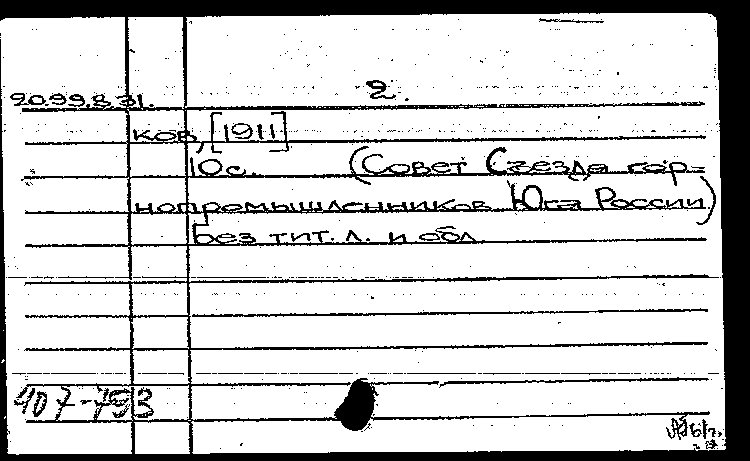 2.
20.99.8.31.
ков, [1911]
10с. (Совет Съезда гор=
нопромышленников Юга России)
Без тит. л. и обл.
407-793